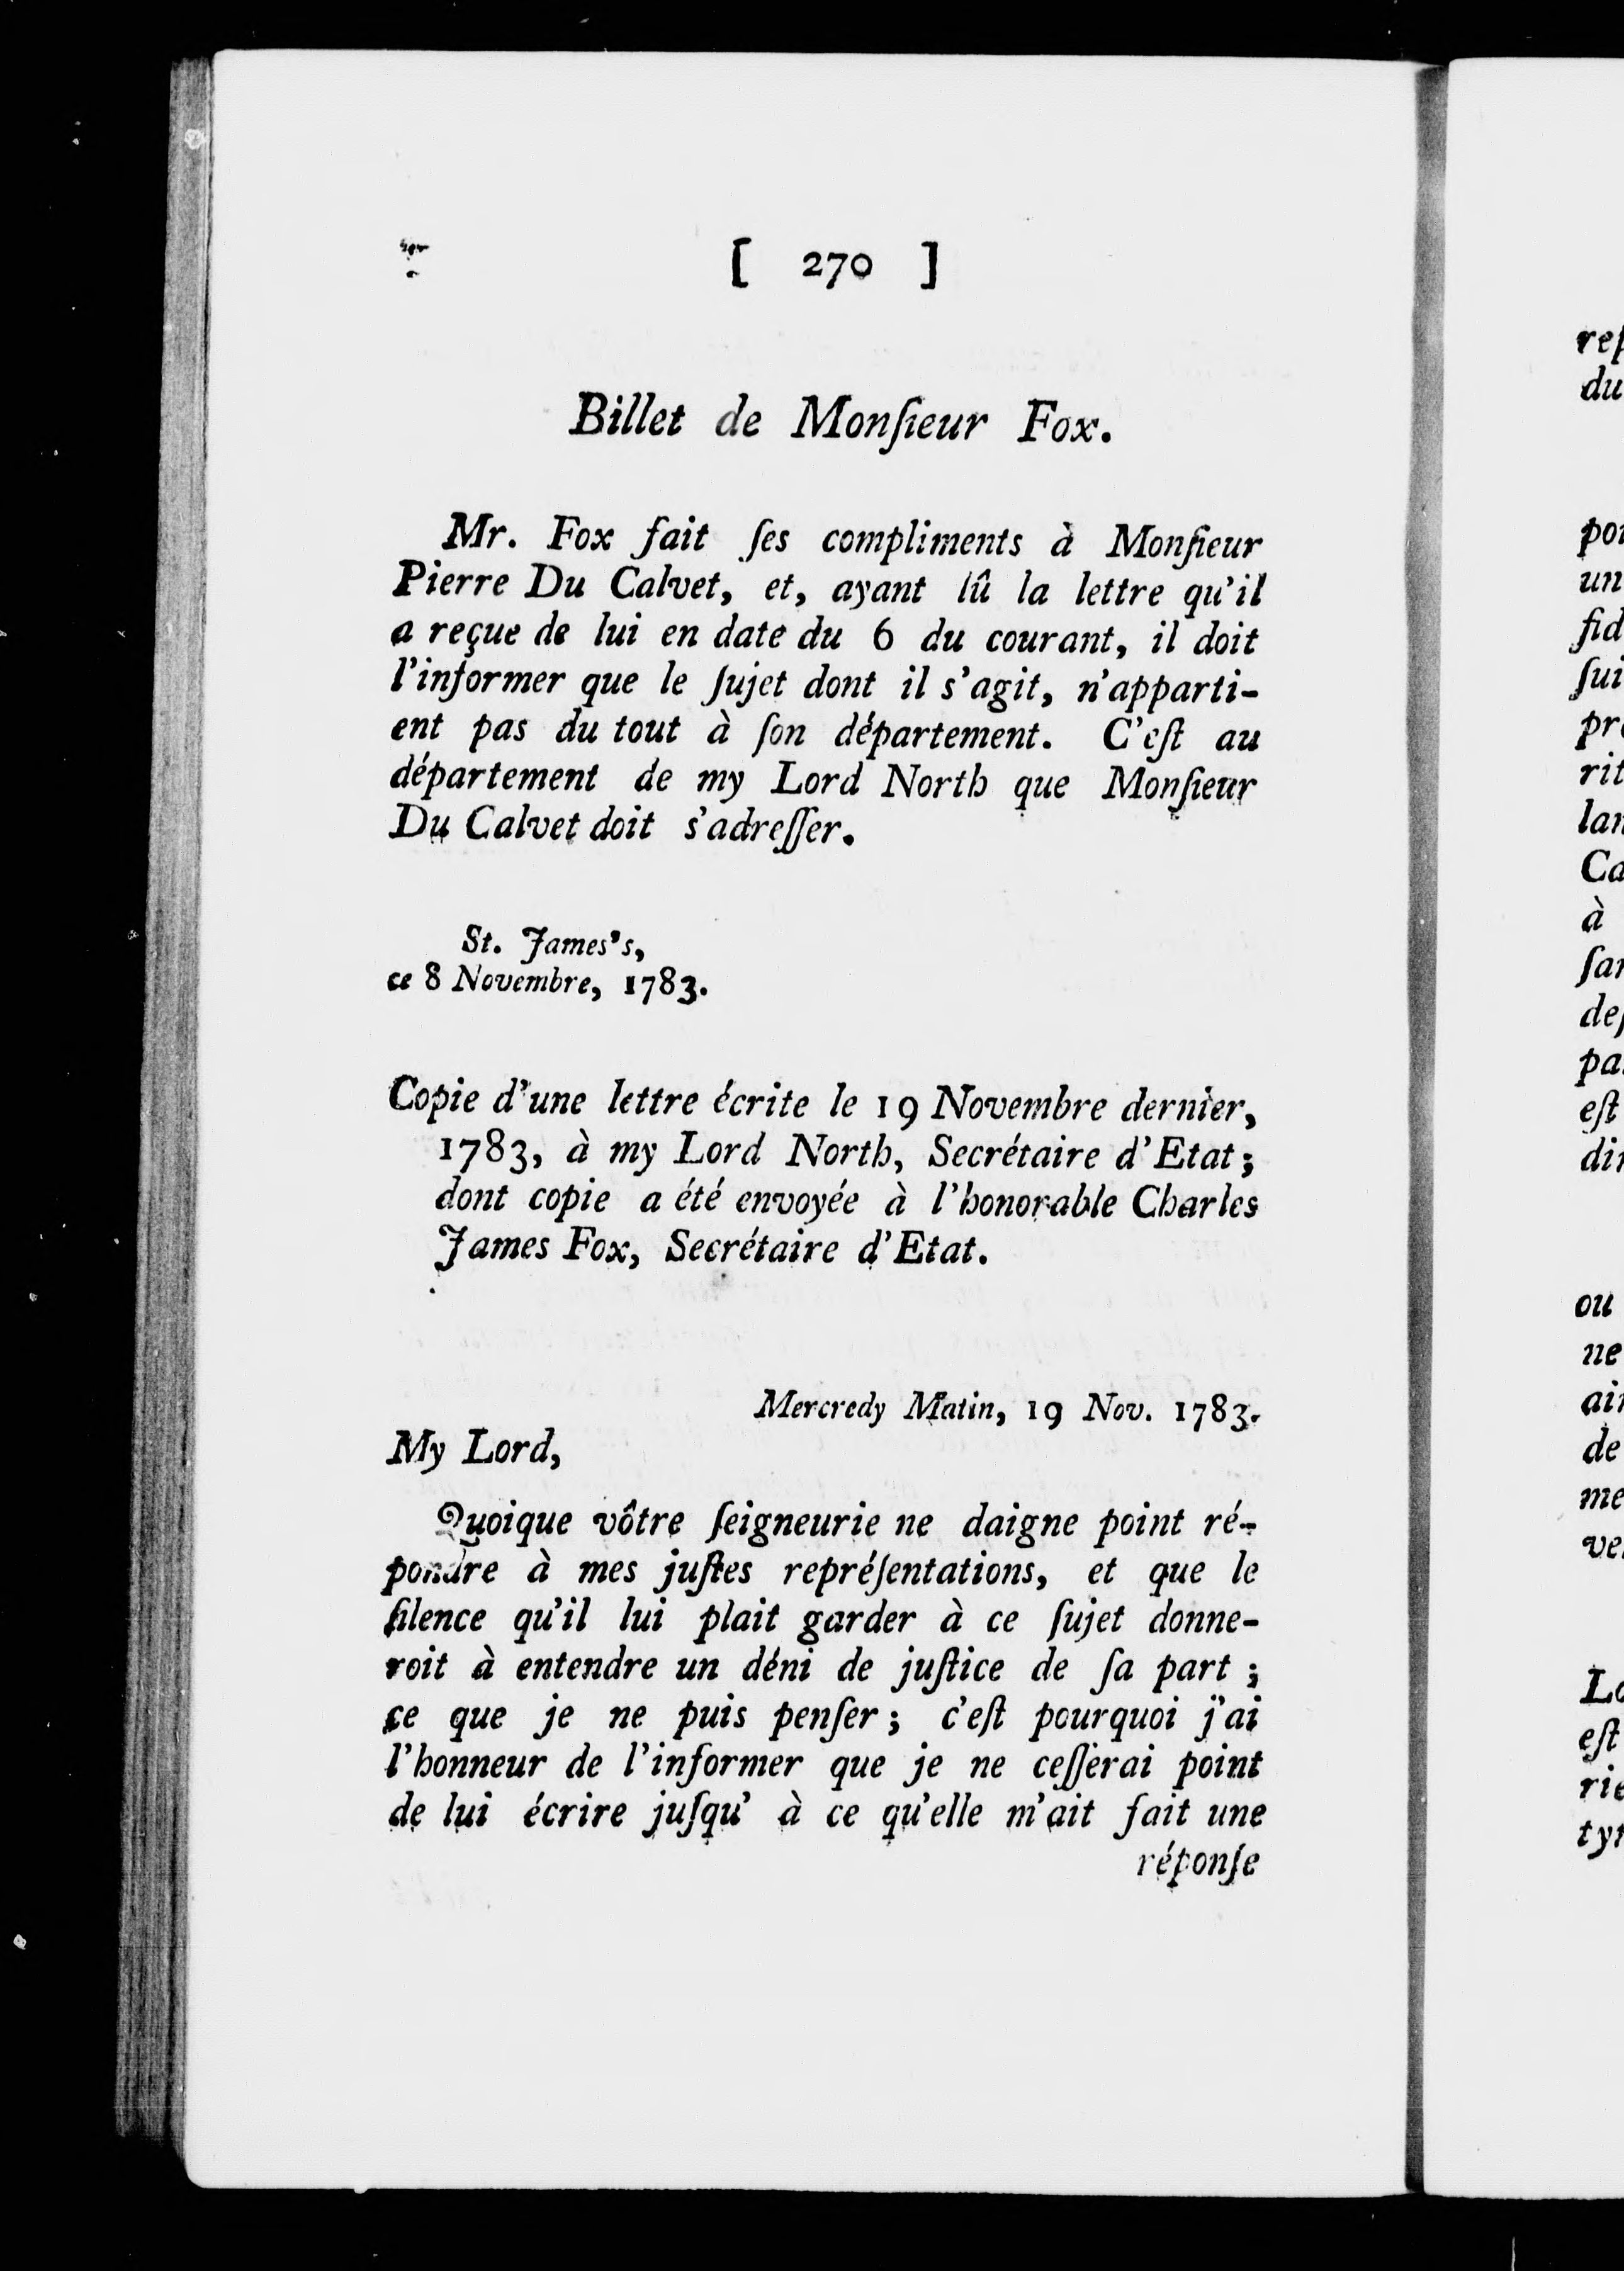 [ 270 ]
Billet de Monſieur Fox.
Mr. Fox fait ſes compliments à Monſieur
Pierre Du Calvet, et, ayant lû la lettre qu'il
a reçue de lui en date du 6 du courant, il doit
l'informer que le ſujet dont il s'agit, n'apparti-
ent pas du tout à ſon département. C'eſt au
département de my Lord North que Monſieur
Du Calvet doit s'adreſſer.
St. James's,
ce 8 Novembre, 1783.
Copie d'une lettre écrite le 19 Novembre dernier,
1783, à my Lord North, Secrétaire d'Etat;
dont copie a été envoyée à l'honorable Charles
James Fox, Secrétaire d'Etat.
Mercredy Matin, 19 Nov. 1783.
My Lord,
Quoique vôtre ſeigneurie ne daigne point ré-
pondre à mes juſtes repréſentations, et que le
ſilence qu'il lui plait garder à ce ſujet donne-
roit à entendre un déni de juſtice de ſa part;
ce que je ne puis penſer; c'eſt pourquoi j'ai
l'honneur de l'informer que je ne ceſſerai point
de lui écrire juſqu' à ce qu'elle m'ait fait une
réponſe
du
un
Ca
à
eſt
ou
ne
de
eſt